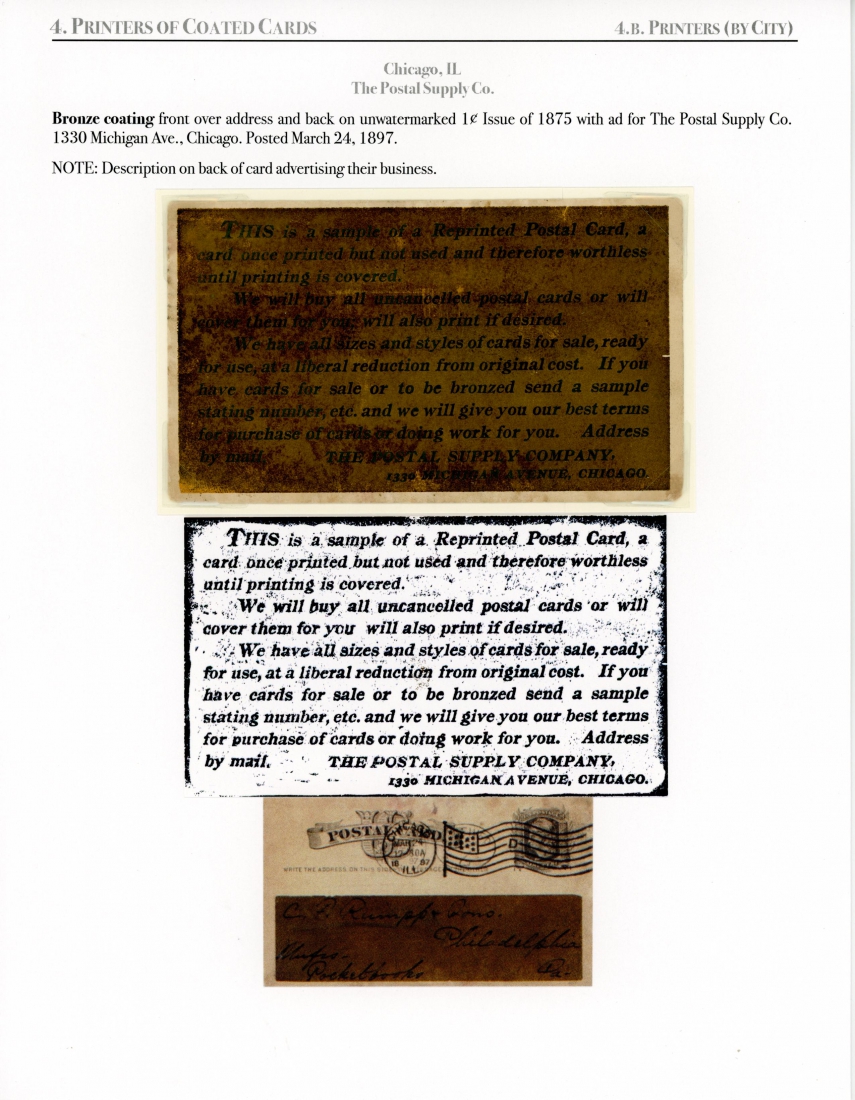 4. PRINTERS OF COATED CARDS
4.B. PRINTERS (BY CITY)
Chicago, IL
The Postal Supply Co.
Bronze coating front over address and back on unwatermarked 1¢ Issue of 1875 with ad for The Postal Supply Co.
1330 Michigan Ave., Chicago. Posted March 24, 1897.
NOTE: Description on back of card advertising their business.
THIS is a sample of a Reprinted Postal Card, a
card once printed but not used and therefore worthless
until printing is covered.
We will buy all uncancelled postal cards or will
cover them for you, will also print if desired.
We have all sizes and styles of cards for sale, ready
for use, at a liberal reduction from original cost. If you
have cards for sale or to be bronzed send a sample
stating number, etc. and we will give you our best terms
for purchase of cards or doing work for you. Address
by mail. THE POSTAL SUPPLY COMPANY,
1330 MICHIGAN AVENUE, CHICAGO.
THIS is a sample of a Reprinted Postal Card, a
card once printed but not used and therefore worthless
until printing is covered.
We will buy all uncancelled postal cards or will
cover them for you will also print if desired.
We have all sizes and styles of cards for sale, ready
for use, at a liberal reduction from original cost. If you
have cards for sale or to be bronzed send a sample
stating number, etc. and we will give you our best terms
for purchase of cards or doing work for you. Address
by mail. THE POSTAL SUPPLY COMPANY,
1330 MICHIGAN AVENUE, CHICAGO.
POSTAL CARD
CHICAGO
MAR 24
97
ILL.
WRITE THE ADDRESS ON THIS
C. F. Rumpp & Sons.
Philadelphia
Mufrs. Pa.
Pocketbooks